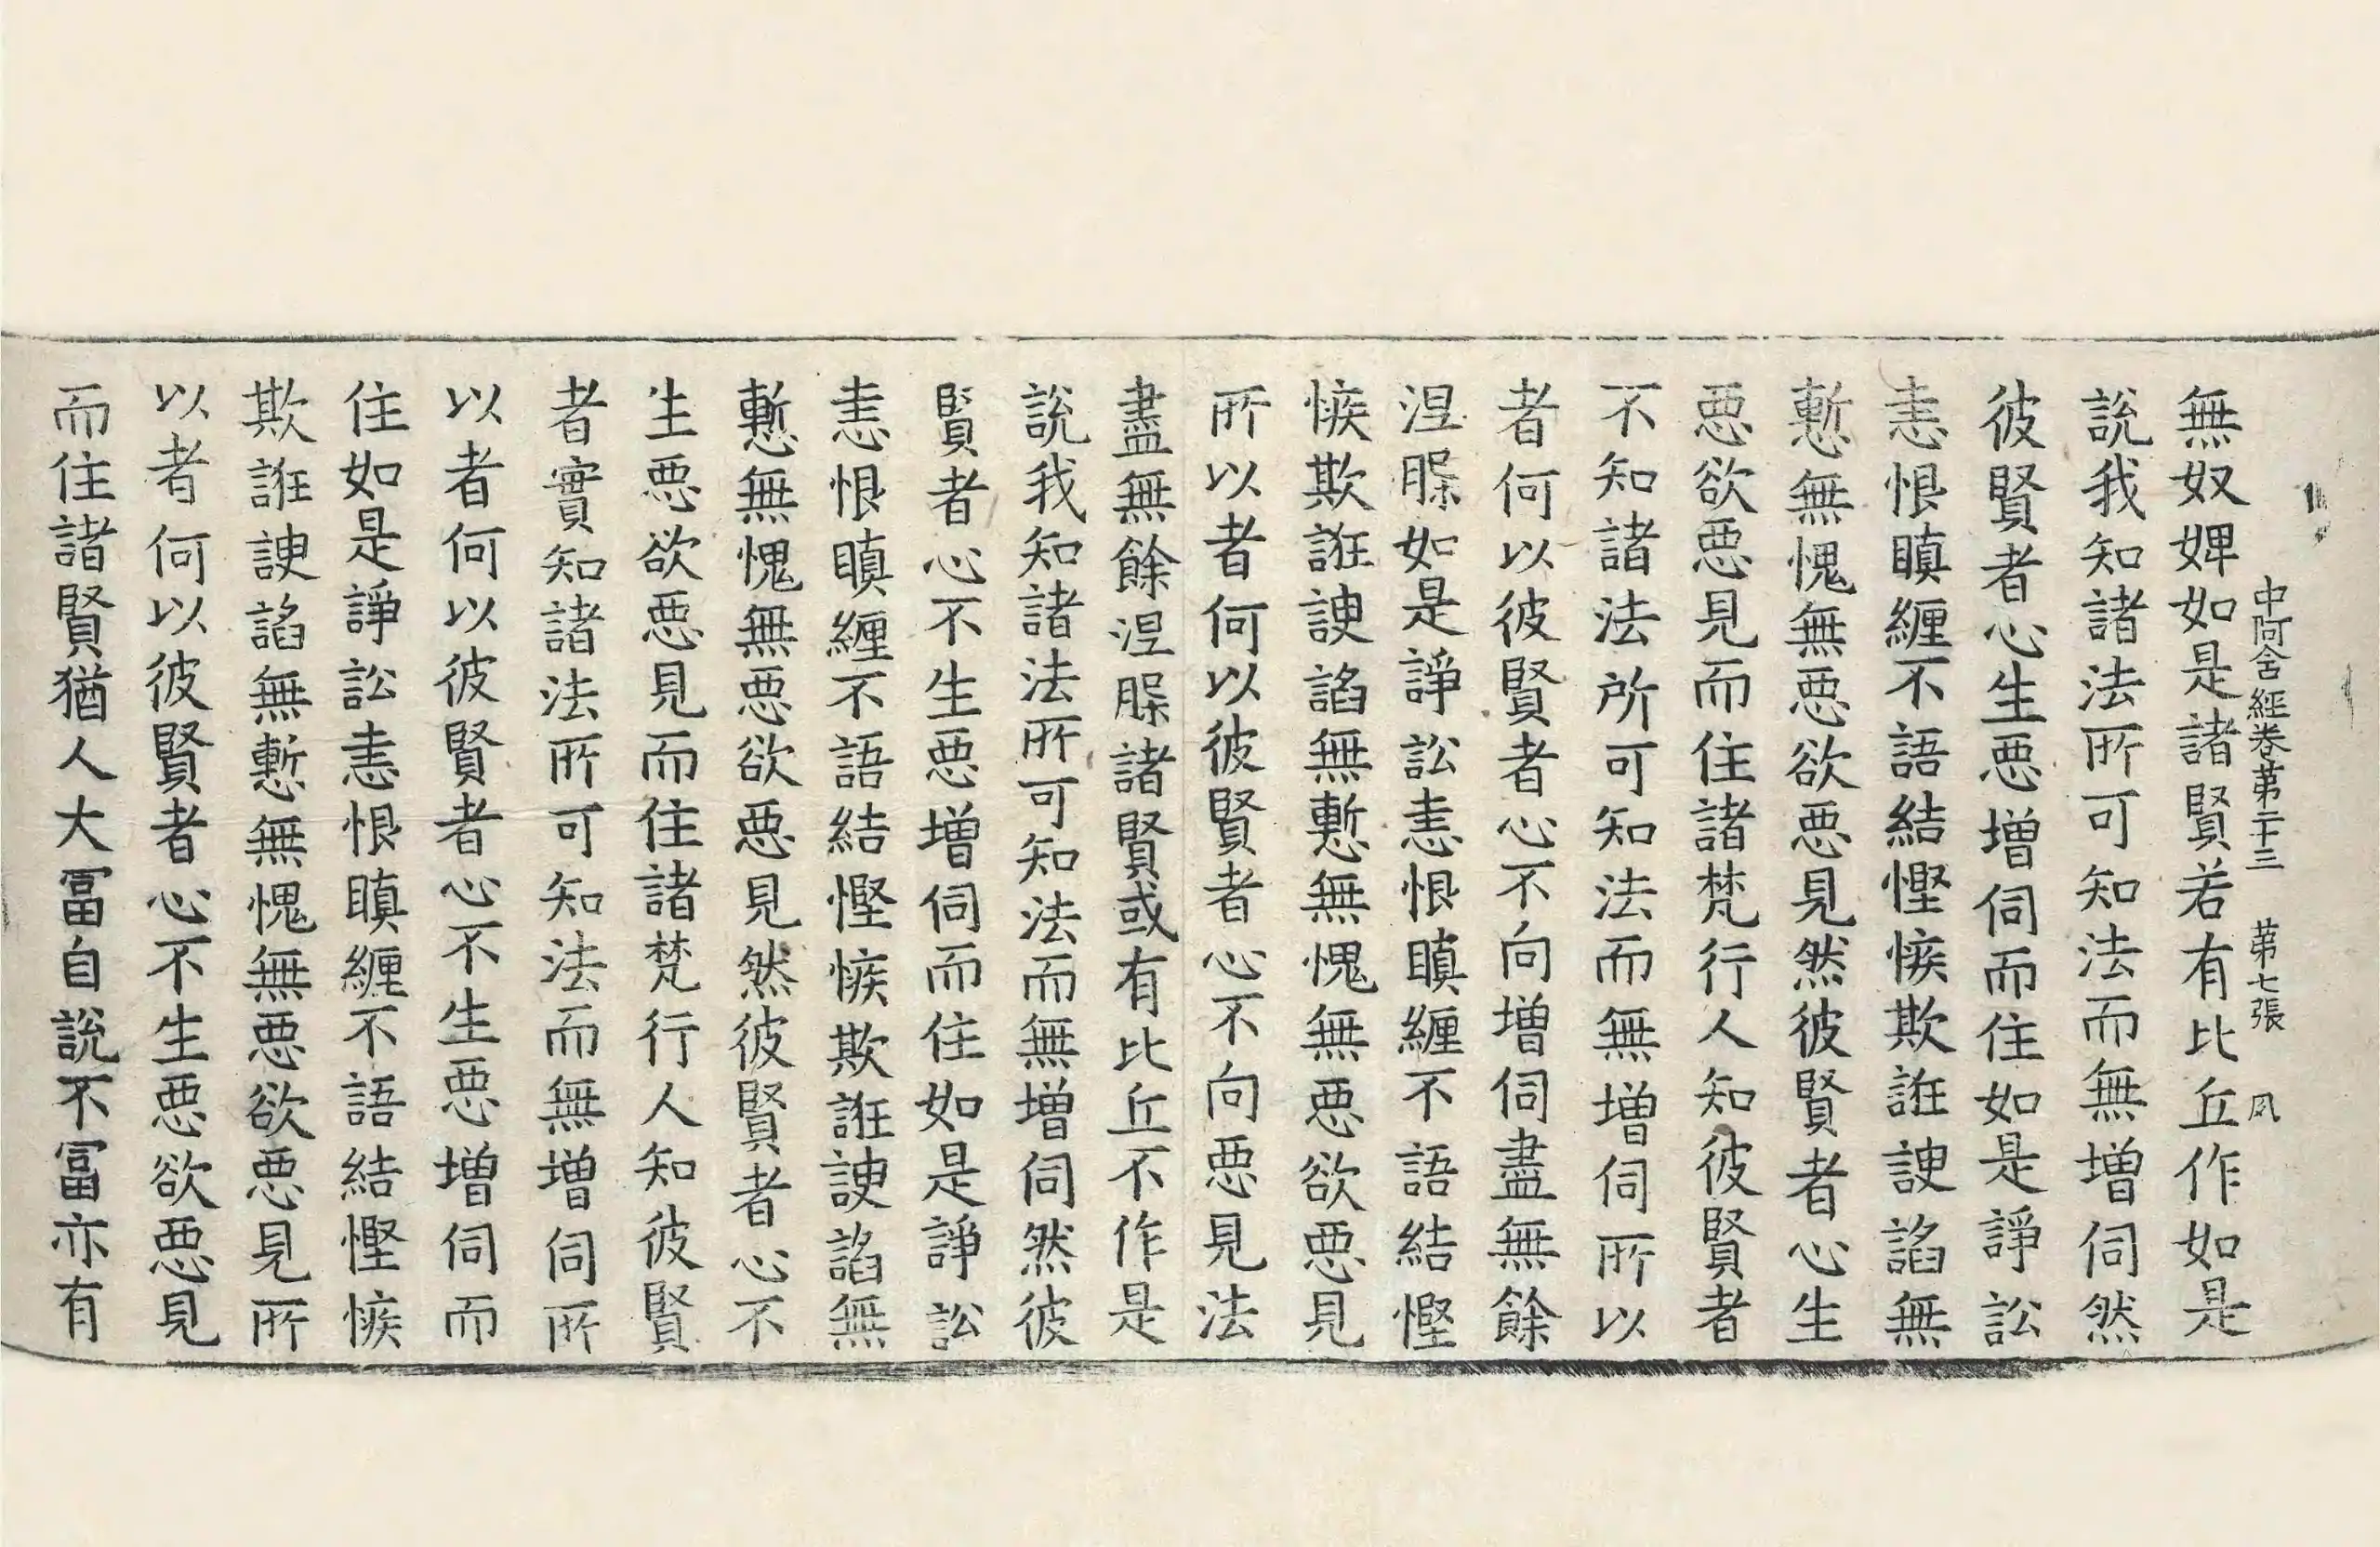 中阿含經卷第二十三 第七張 夙
無奴婢如是諸賢若有比丘作如是
說我知諸法所可知法而無增伺然
彼賢者心生惡增伺而住如是諍訟
恚恨瞋纏不語結慳嫉欺誑諛諂無
慙無愧無惡欲惡見然彼賢者心生
惡欲惡見而住諸梵行人知彼賢者
不知諸法所可知法而無增伺所以
者何以彼賢者心不向增伺盡無餘
涅槃如是諍訟恚恨瞋纏不語結慳
嫉欺誑諛諂無慙無愧無惡欲惡見
所以者何以彼賢者心不向惡見法
盡無餘涅槃諸賢或有比丘不作是
說我知諸法所可知法而無增伺然彼
賢者心不生惡增伺而住如是諍訟
恚恨瞋纏不語結慳嫉欺誑諛諂無
慙無愧無惡欲惡見然彼賢者心不
生惡欲惡見而住諸梵行人知彼賢
者實知諸法所可知法而無增伺所
以者何以彼賢者心不生惡增伺而
住如是諍訟恚恨瞋纏不語結慳嫉
欺誑諛諂無慙無愧無惡欲惡見所
以者何以彼賢者心不生惡欲惡見
而住諸賢猶人大冨自說不冨亦有